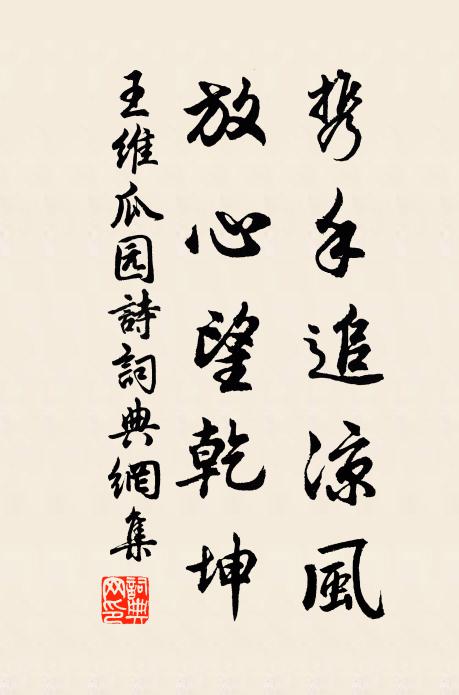 携手追涼風
放心望乾坤
王维瓜园詩詞典網集
詞典
网印